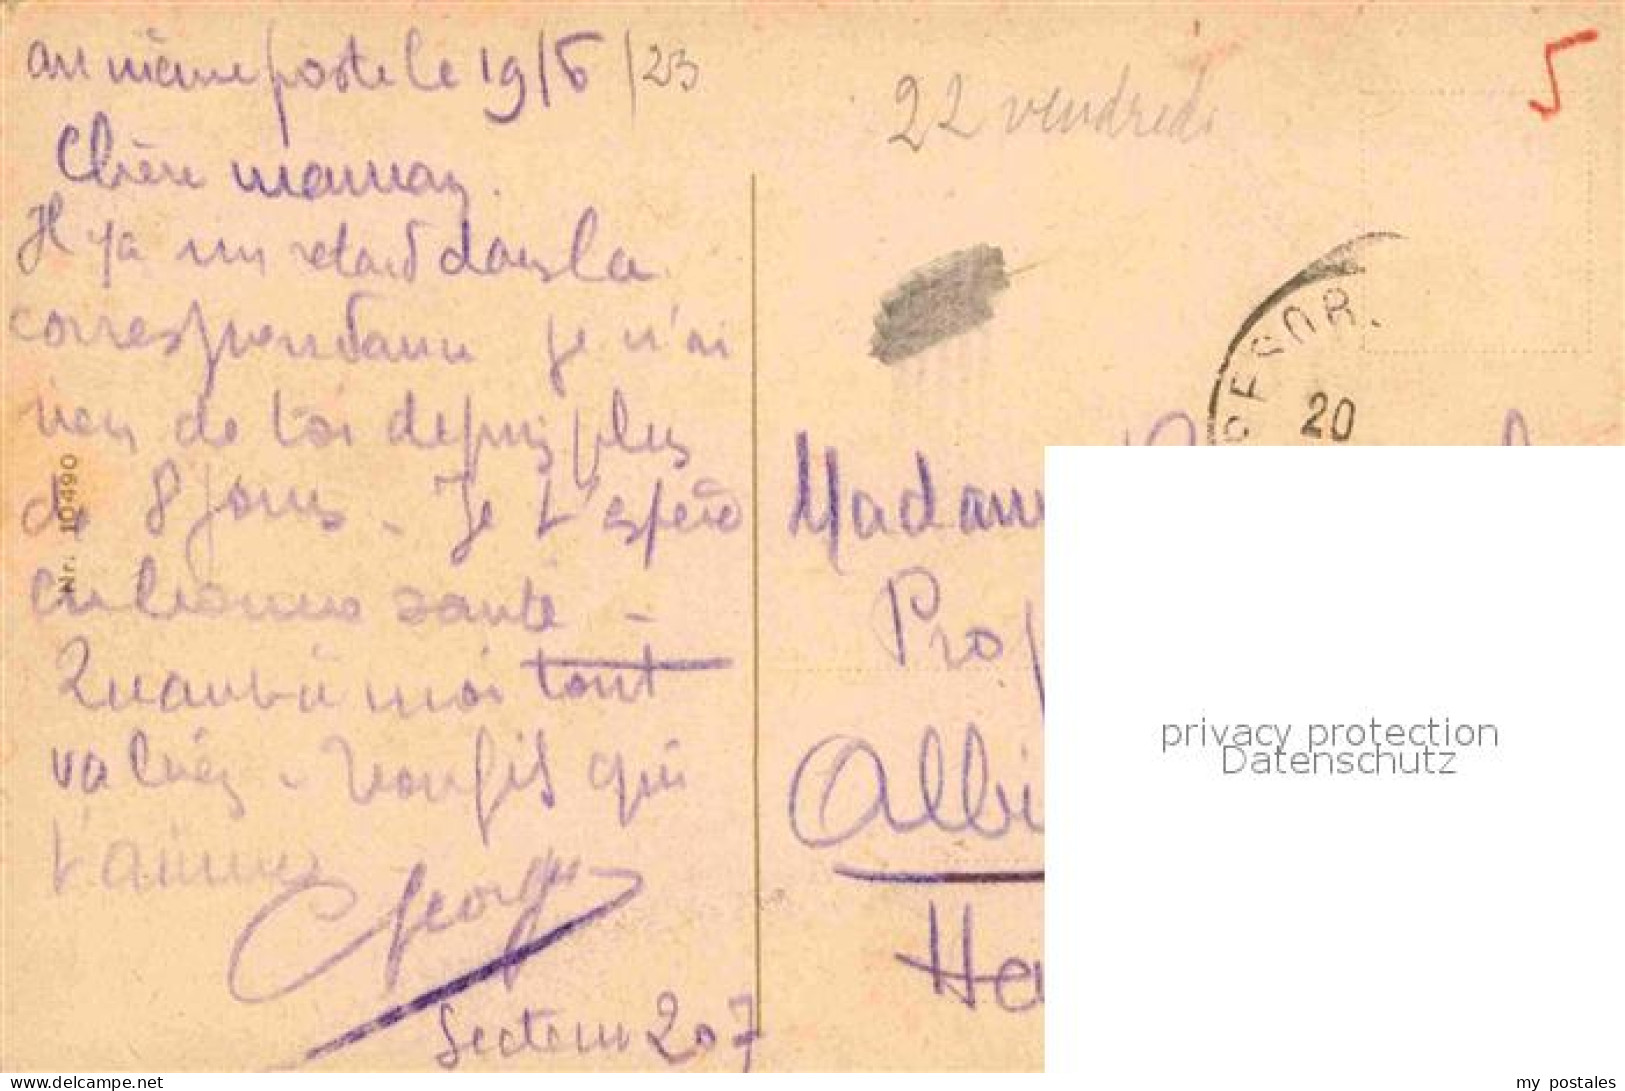 au même poste le 19/6/23
Chère maman.
Il y a un retard dans la
correspondance je n'ai
rien de toi depuis plus
de 8 jours - Je t'espère
en bonne santé -
Quant à moi tout
va bien - Ton fils qui
t'aime
Georges
Secteur 207
Nr. 10490
22 vendredi
5
20
Madam
Prof
Albi
He
privacy protection
Datenschutz
www.delcampe.net
my_postales